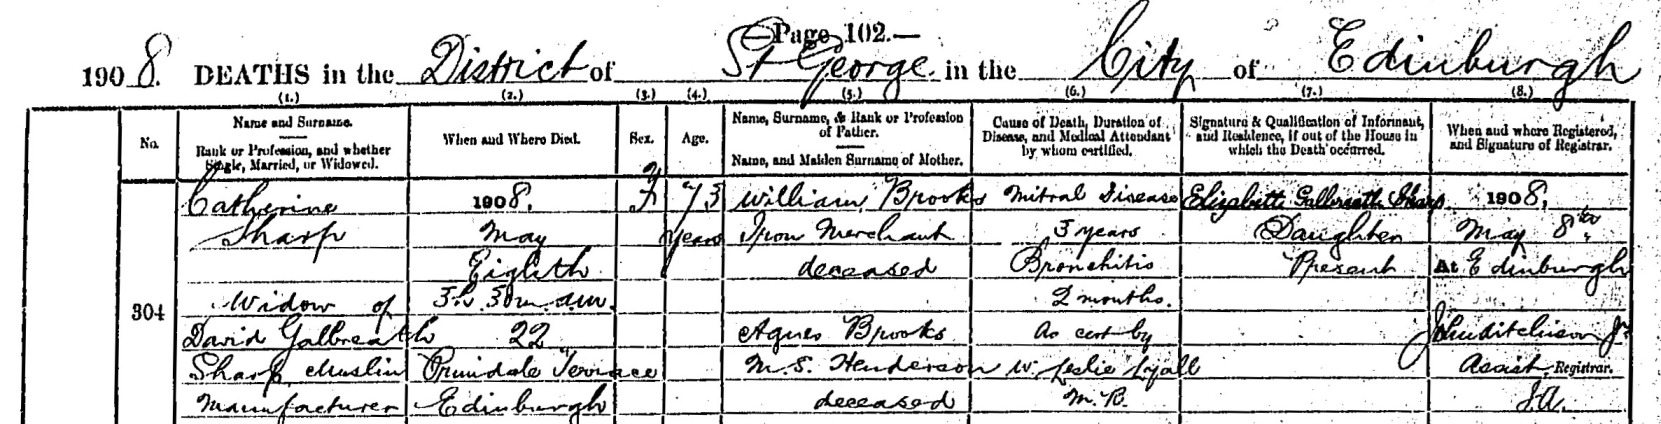 —Page 102.—
1908. DEATHS in the District of St George in the City of Edinburgh
(1.) (2.) (3.) (4.) (5.) (6.) (7.) (8.)
No.
Name and Surname.
Rank or Profession, and whether
Single, Married, or Widowed.
When and Where Died.
Sex.
Age.
Name, Surname, & Rank or Profession
of Father.
Name, and Maiden Surname of Mother.
Cause of Death, Duration of
Disease, and Medical Attendant
by whom certified.
Signature & Qualification of Informant,
and Residence, if out of the House in
which the Death occurred.
When and where Registered,
and Signature of Registrar.
304
Catherine
Sharp
Widow of
David Galbreath
Sharp, Muslin
Manufacturer
1908,
May
Eighth
3h. 30m. a.m.
22
Terrace
Edinburgh
F
73
years
William Brooks
Iron Merchant
deceased
Agnes Brooks
M.S. Henderson
deceased
Mitral Disease
3 years
Bronchitis
2 months.
As cert by
W. Leslie Lyall
M.B.
Elizabeth Galbreath Sharp
Daughter
Present
1908,
May 8th
At Edinburgh
Assist. Registrar.